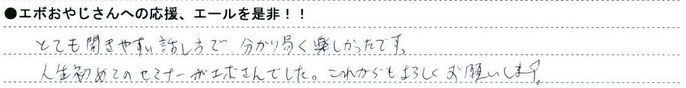 ●エボおやじさんへの応援、エールを是非！！
とても聞きやすい話し方で 分かり易く楽しかったです。
人生初めてのセミナーがエボさんでした。これからもよろしくお願いします。